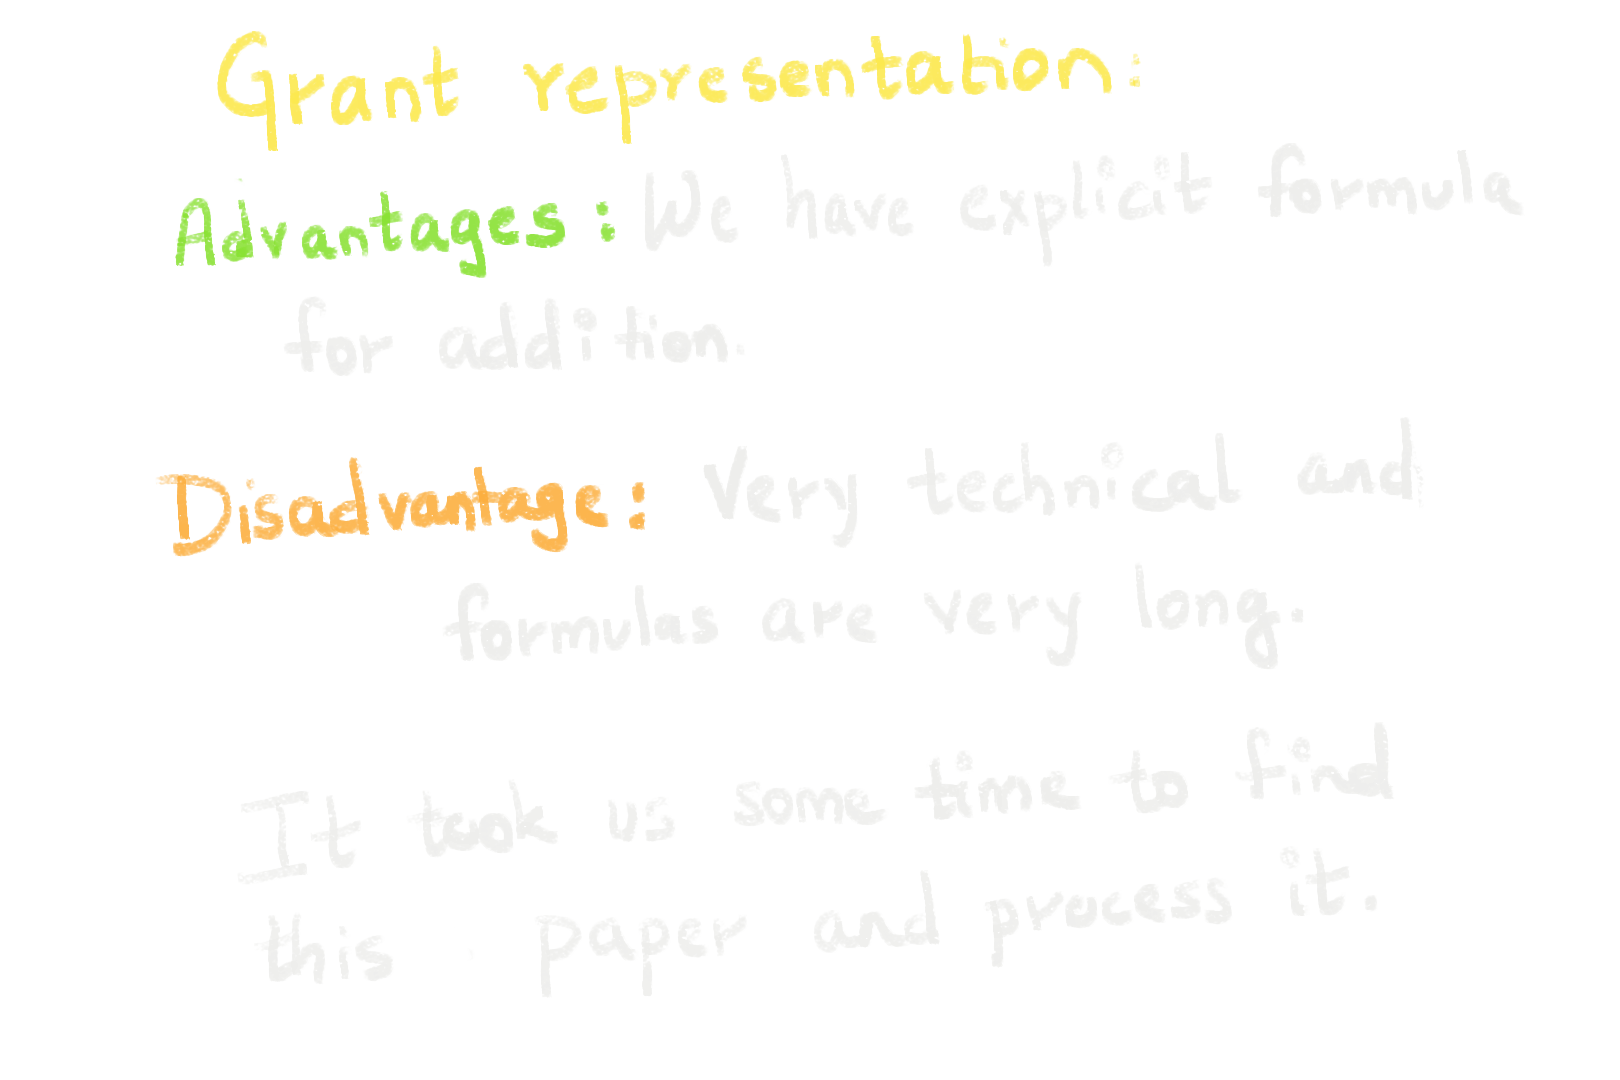 Grant representation:
Advantages: We have explicit formula
for addition.
Disadvantage: Very technical and
formulas are very long.
It took us some time to find
this paper and process it.